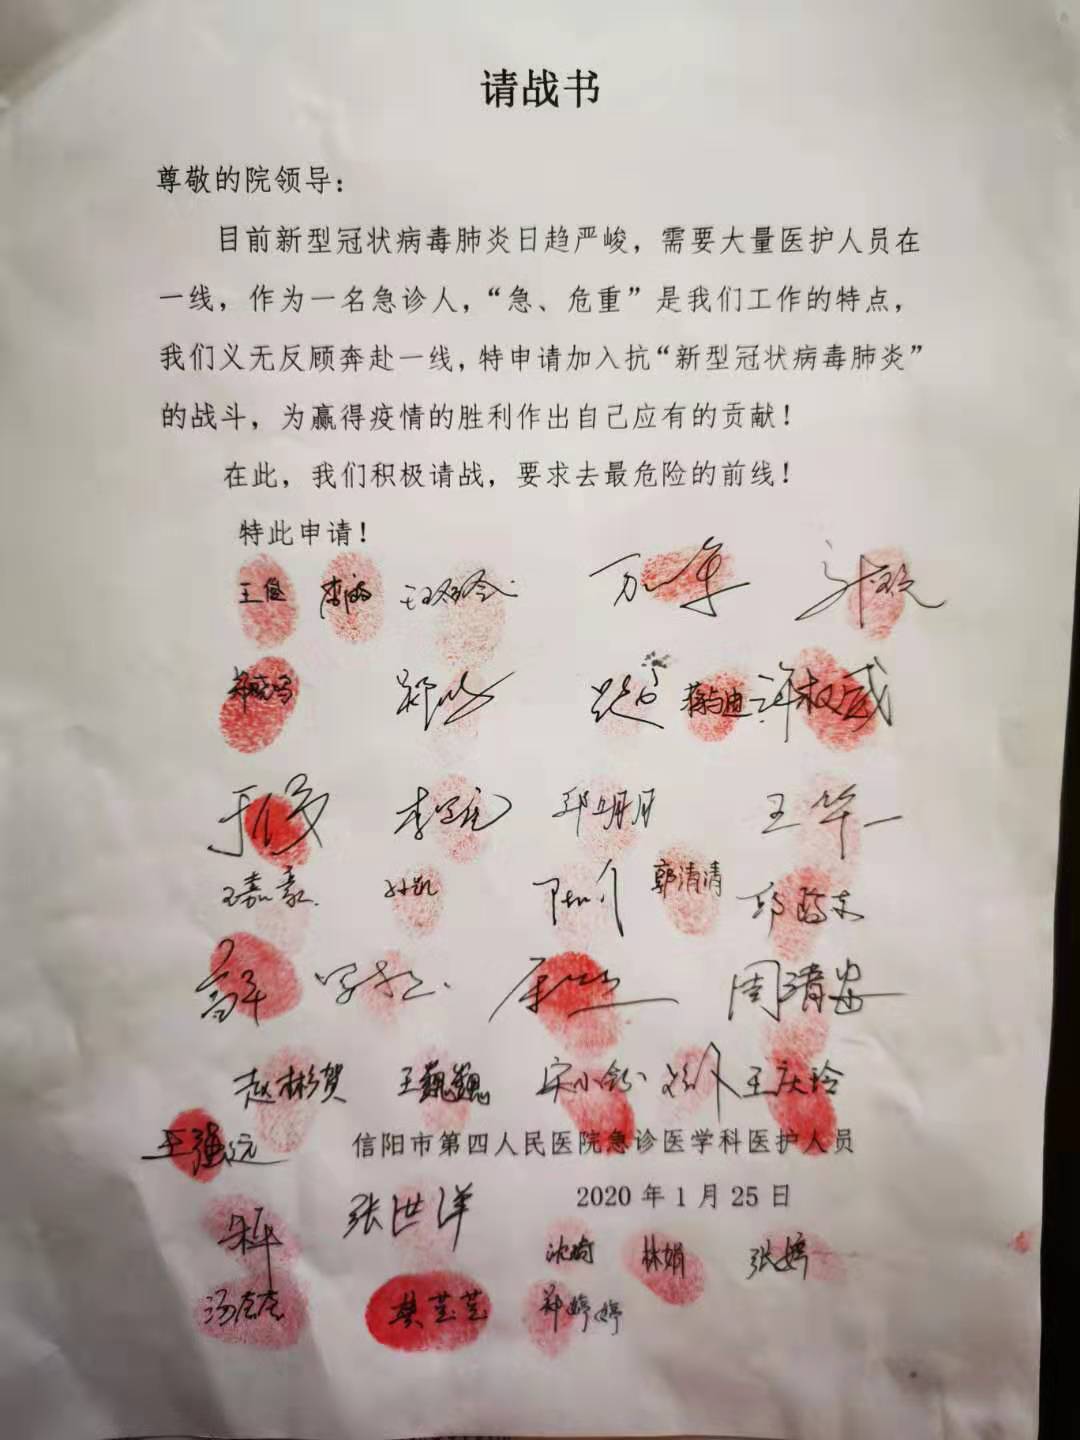 请战书
尊敬的院领导：
目前新型冠状病毒肺炎日趋严峻，需要大量医护人员在
一线，作为一名急诊人，“急、危重”是我们工作的特点，
我们义无反顾奔赴一线，特申请加入抗“新型冠状病毒肺炎”
的战斗，为赢得疫情的胜利作出自己应有的贡献！
在此，我们积极请战，要求去最危险的前线！
特此申请！
蒋与迪 许权威
邱明月 王华一
王嘉豪 孙凯 郭清清
周清安
赵彬贺 王巍巍 王庆玲
王强远 信阳市第四人民医院急诊医学科医护人员
2020 年 1 月 25 日
张洪洋
沈琦 林娟 张婷
樊芸芸 郑婷婷